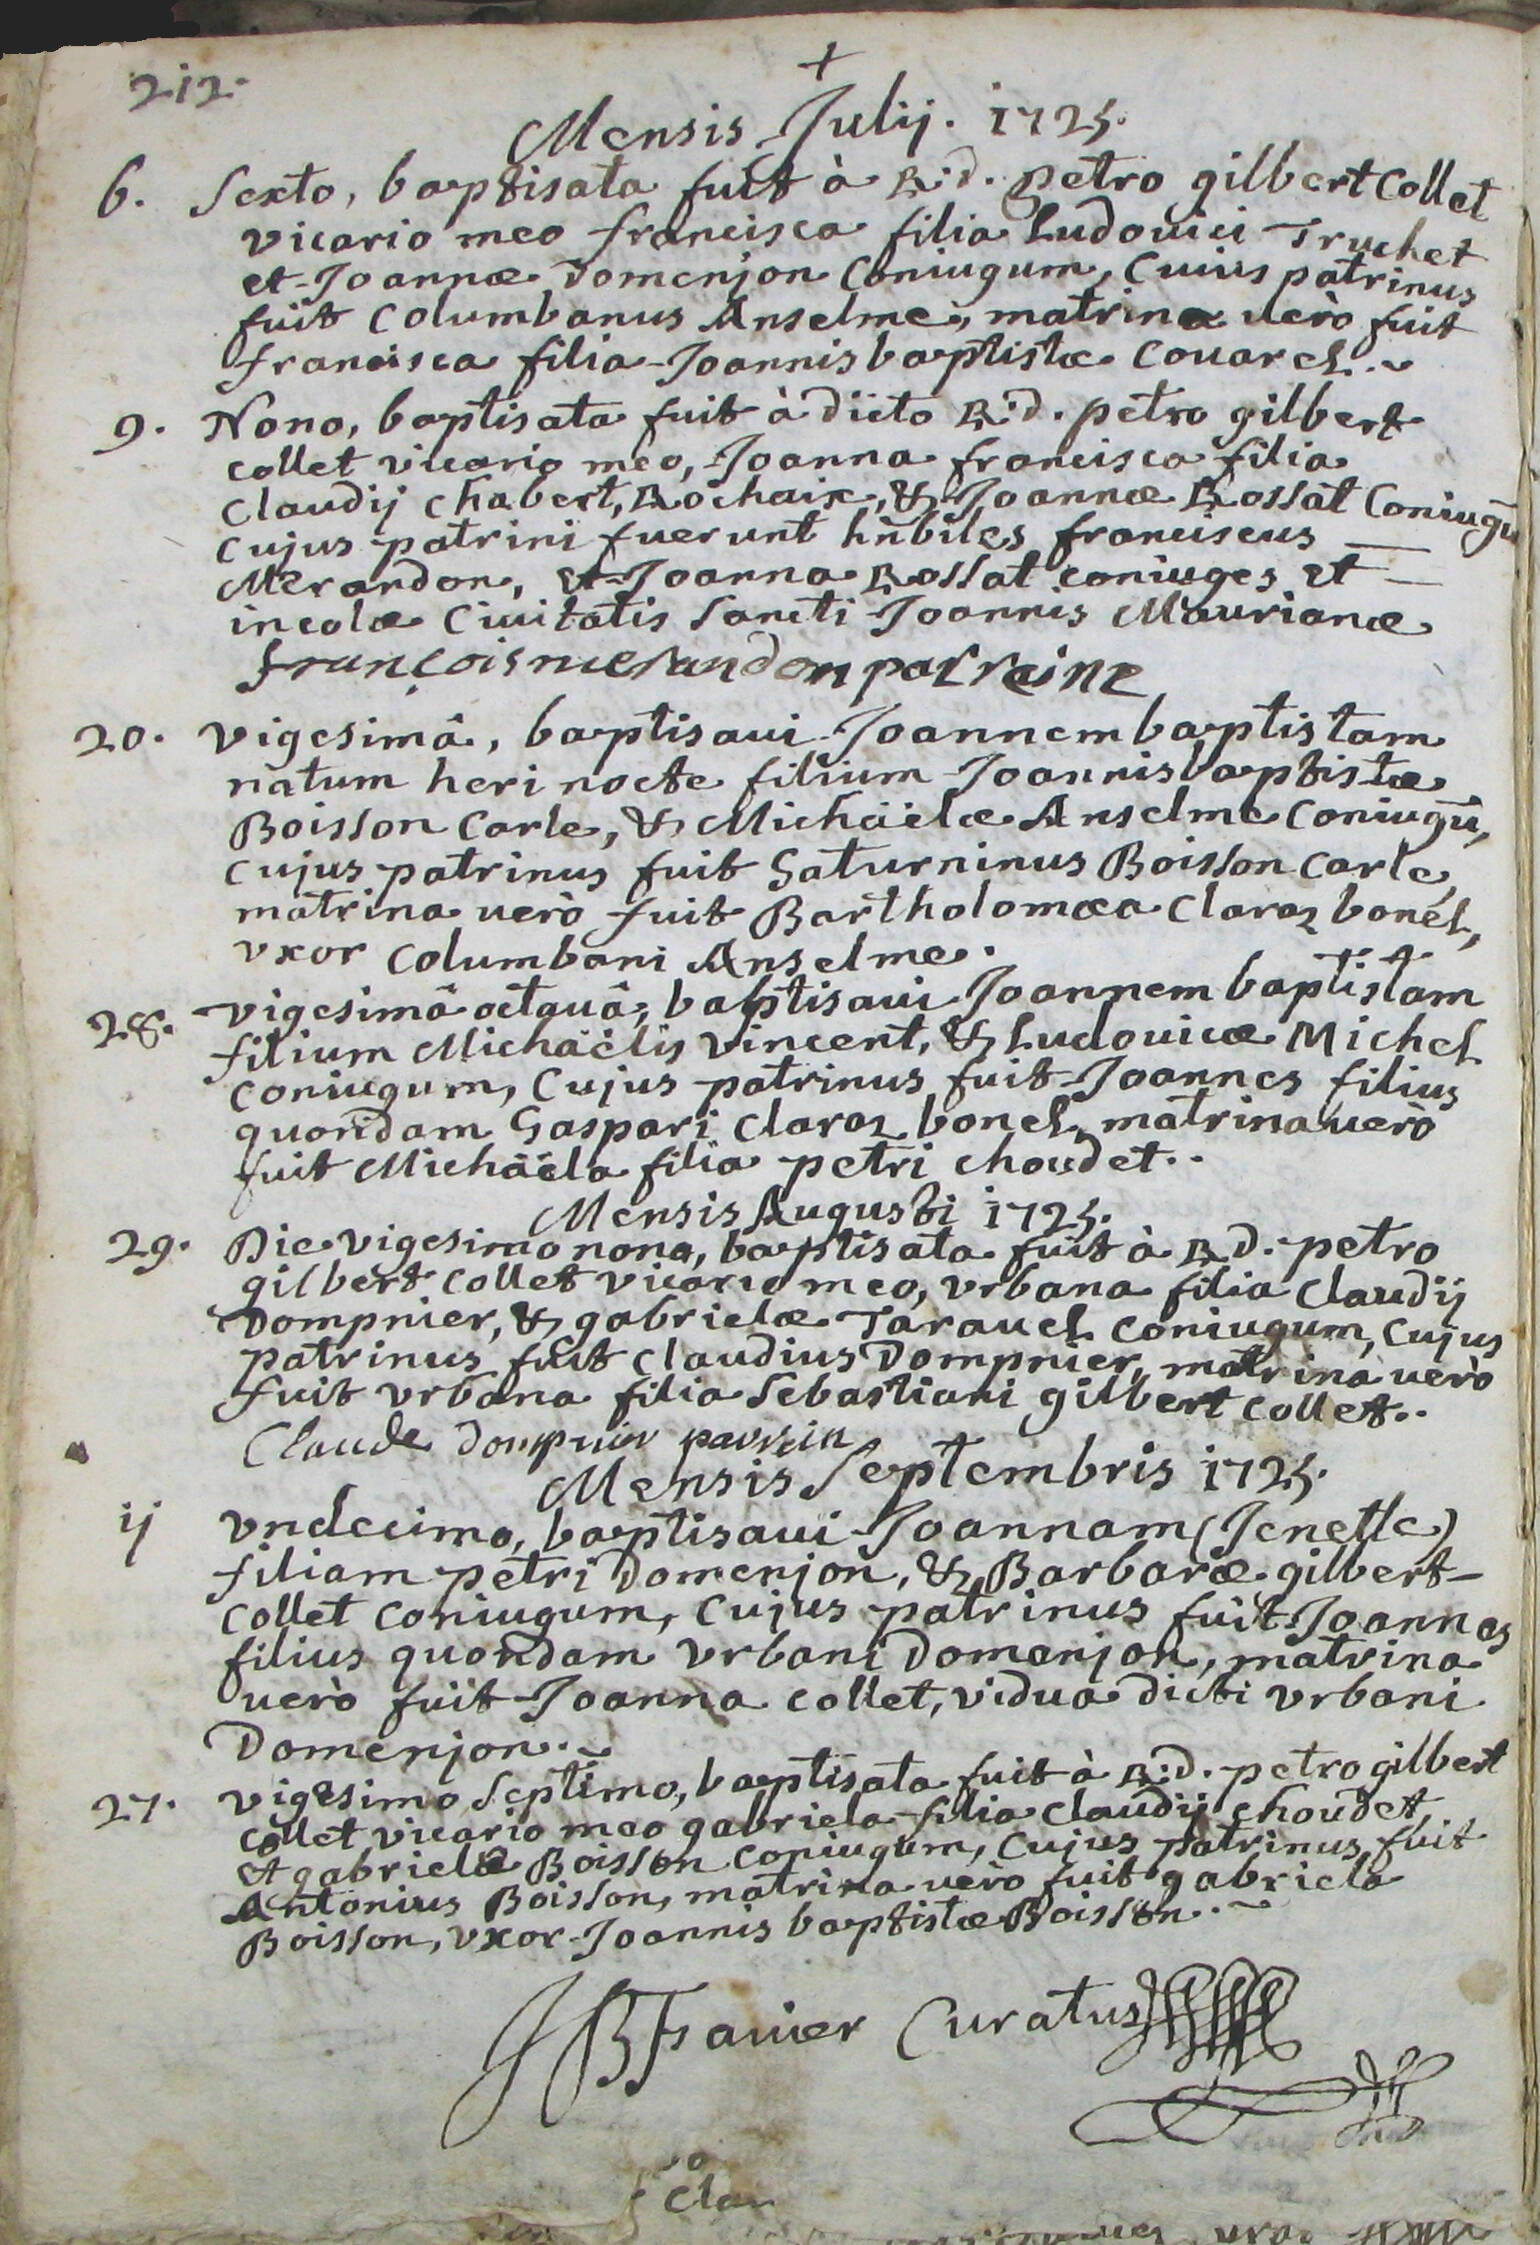 212.
+
Mensis Julij. 1725.
6. Sexto, baptisata fuit à R:d. petro gilbert Collet
vicario meo francisca filia Ludovici Truchet
et Joannæ Domenjon Coniugum, Cuius patrinus
fuit Columbanus Anselme, matrina verò fuit
francisca filia Joannis baptistæ Covarel.~
9. Nono, baptisata fuit à dicto R:d. petro gilbert
collet vicario meo, Joanna francisca filia
Claudij Chabert, Rochaix, & Joannæ Rossat Coniugū
Cujus patrini fuerunt hnbiles franciscus —
Merandon, et Joanna Rossat coniuges et —
incolæ Civitatis Sancti Joannis Maurianæ
françois merandon parreine
20. Vigesimâ, baptisavi Joannem baptistam
natum heri nocte filium Joannis baptistæ
Boisson Carle, & Michäelæ Anselme Coniugū,
Cujus patrinus fuit Saturninus Boisson Carle,
matrina uerò fuit Bartholomæa Claraz bonel,
vxor Columbani Anselme.
28. Vigesimâ octauâ, baptisaui Joannem baptistam
filium Michäelis Vincent, & Ludovicæ Michel
coniugum, Cujus patrinus fuit Joannes filius
quondam Gaspari Claraz bonel, matrina uerò
fuit Michäela filia petri choudet..
Mensis Augusti 1725.
29. Die vigesimo nona, baptisata fuit à R d. petro
gilbert collet vicario meo, vrbana filia Claudij
Dompnier, & gabrielæ Taravel coniugum, Cujus
patrinus fuit Claudius Dompnier, matrina uerò
fuit vrbana filia Sebastiani gilbert collet..
Claude dompnier parrein
Mensis Septembris 1725.
ij Vndecimo, baptisavi Joannam (Jenette)
filiam petri Domenjon, & Barbaræ gilbert-
collet coniugum, Cujus patrinus fuit Joannes
filius quondam vrbani Domenjon, matrina
uerò fuit Joanna collet, vidua dicti vrbani
Domenjon.~
27. Vigesimo Septimo, baptisata fuit à R:d. petro gilbert
collet vicario meo gabriela filia Claudij choudet,
et gabrielæ Boisson coniugum, Cujus patrinus fuit
Antonius Boisson, matrina uerò fuit gabriela
Boisson, vxor Joannis baptistæ Boisson.~
Curatus